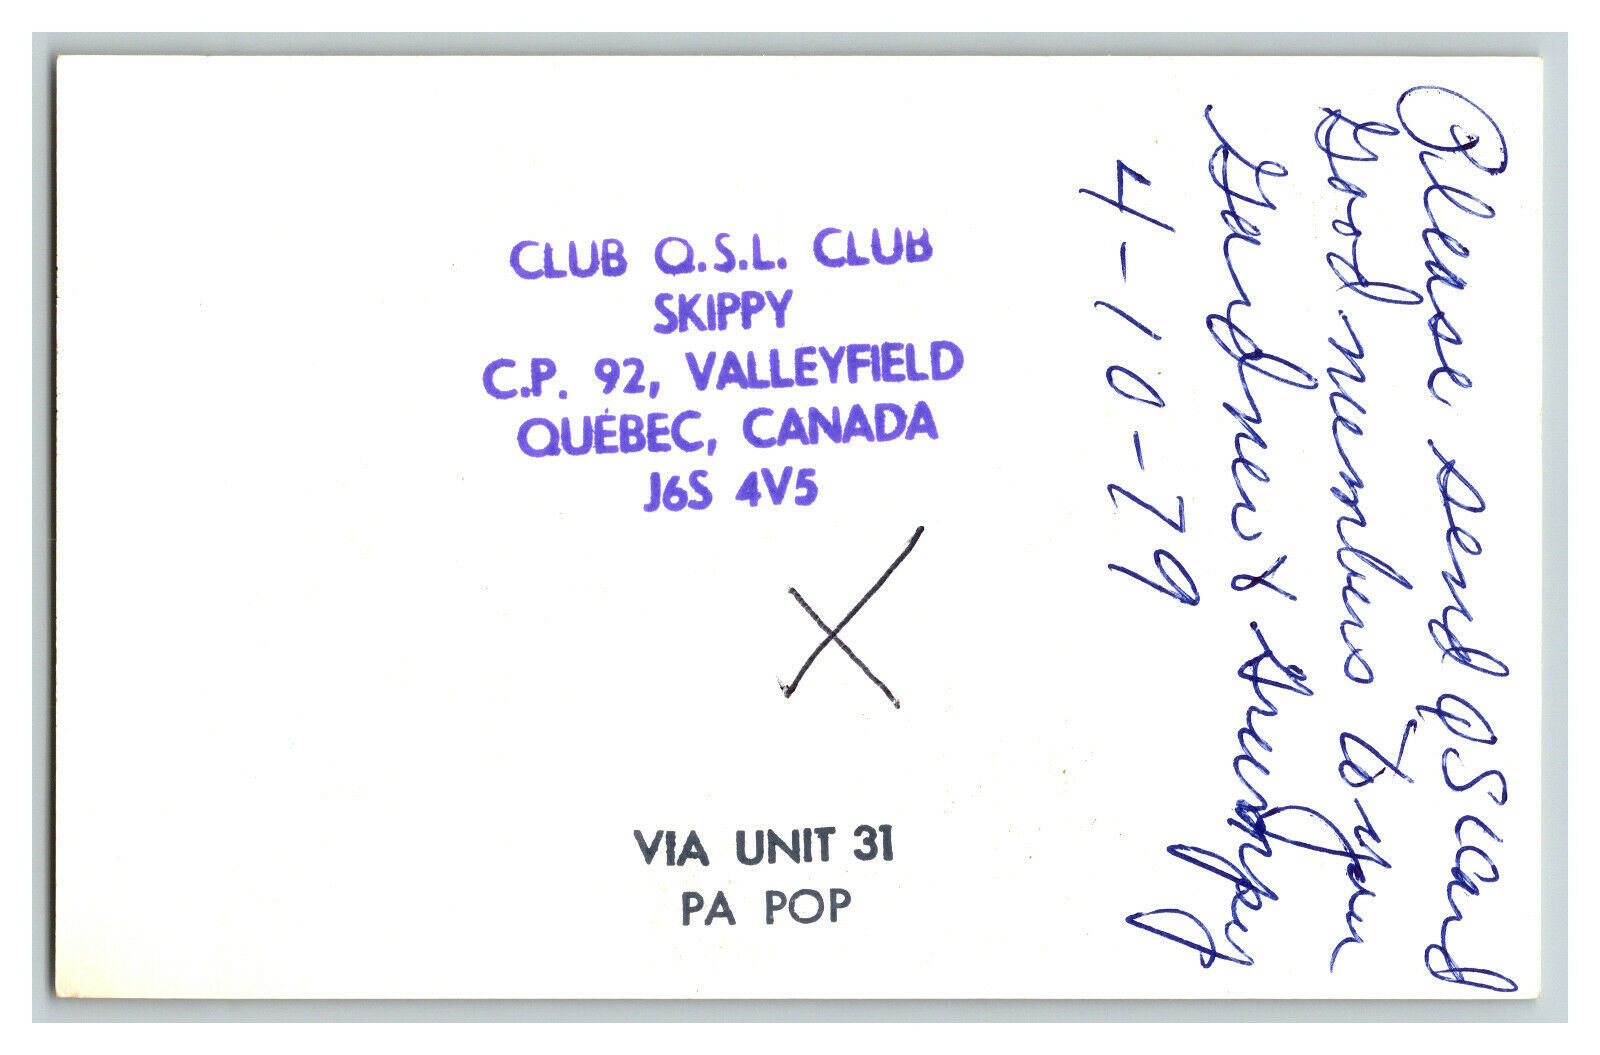 CLUB Q.S.L. CLUB
SKIPPY
C.P. 92, VALLEYFIELD
QUÉBEC, CANADA
J6S 4V5
VIA UNIT 31
PA POP
Please send QSL Card
Good numbers to you
Gardner & Grumpy
4-10-79